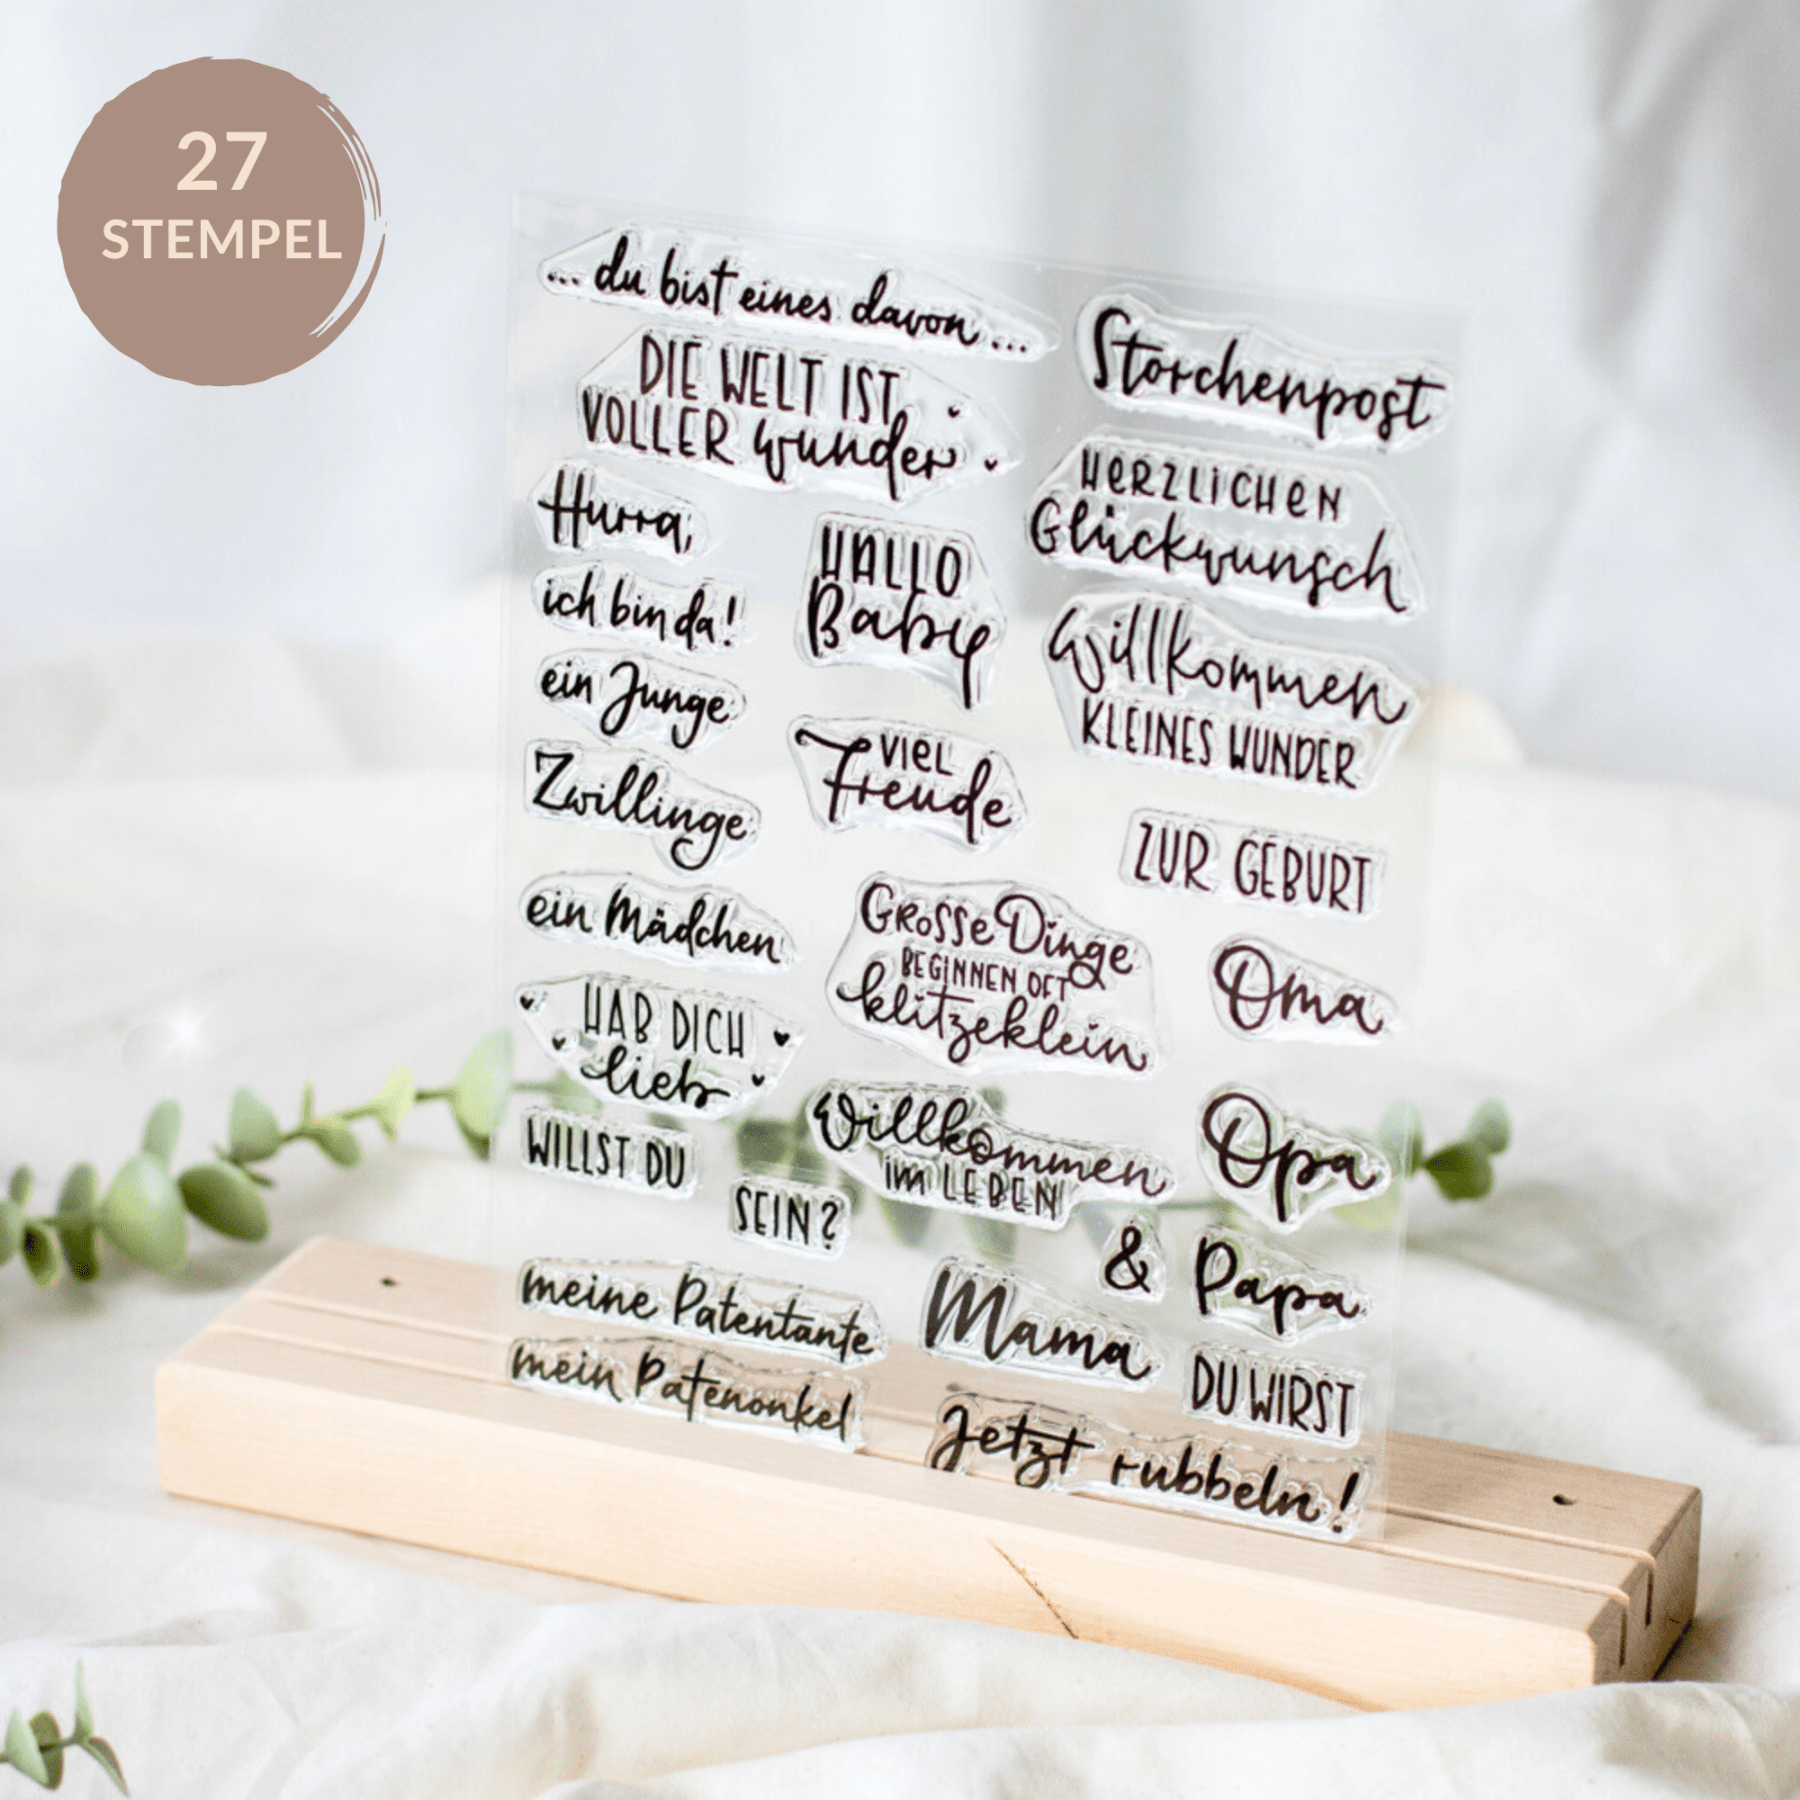 27
STEMPEL
... du bist eines davon ...
DIE WELT IST
VOLLER wunder
Storchenpost
HERZLICHEN
Glückwunsch
Hurra,
ich bin da!
HALLO
Baby
Willkommen
KLEINES WUNDER
ein Junge
Zwillinge
VIEL
Freude
ZUR GEBURT
ein Mädchen
GROSSE Dinge
BEGINNEN OFT
klitzeklein
Oma
HAB DICH
lieb
Willkommen
IM LEBEN
Opa
WILLST DU
SEIN?
&
Papa
meine Patentante
Mama
mein Patenonkel
DU WIRST
Jetzt rubbeln!